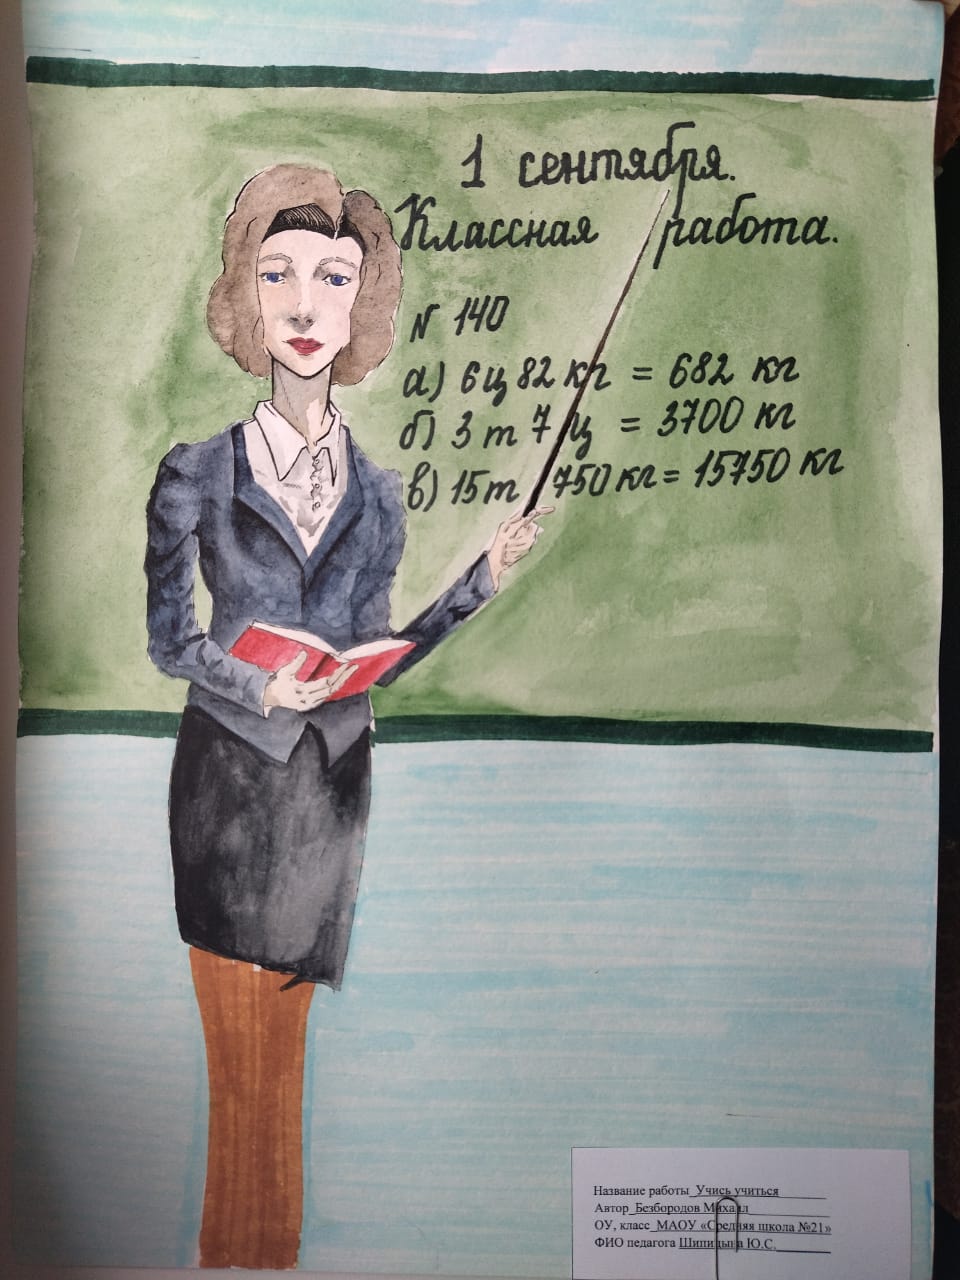 1 сентября.
Классная работа.
N 140
а) 6 ц 82 кг = 682 кг
б) 3 т 7 ц = 3700 кг
в) 15 т 750 кг = 15750 кг
Название работы Учись учиться
Автор Безбородов Михаил
ОУ, класс МАОУ «Средняя школа №21»
ФИО педагога Шипицына Ю.С.